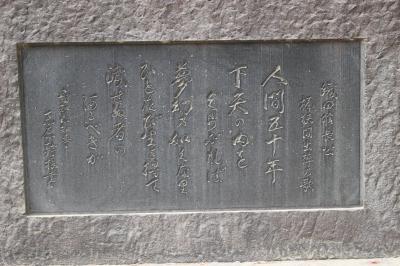 織田信長公
桶狭間出陣の歌
人間五十年
下天の内を
くらぶれば
夢幻の如く奈里
ひと度び生を得て
滅せぬ者の
あるべきか